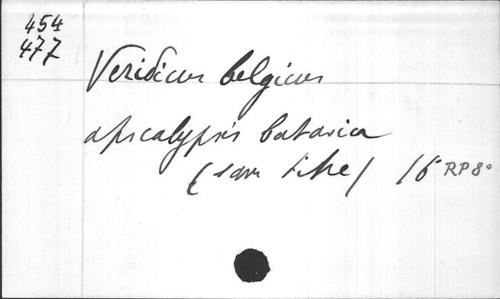 454
477
Veridicus belgicus
apocalypsis batavica
(sans titre) 16 RP 8°